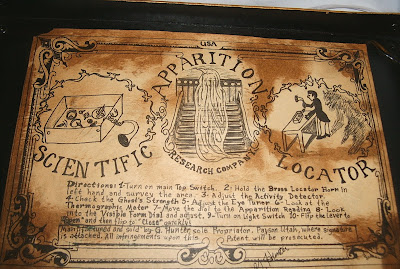 USA
APPARITION
RESEARCH COMPANY
SCIENTIFIC
LOCATOR
Directions: 1-Turn on main Top Switch. 2: Hold the Brass Locator Horn in
left hand, and survey the area. 3- Adjust the Activity Detector.
4-Check the Ghoul's Strength 5-Adjust the Eye Tuner 6-Look at the
Thermographic Meter 7-Move the Dial to the Apparition Reading 8-Look
into the Visible Form Dial and adjust. 9-Turn on Light Switch 10-Flip the lever to
"Open" and then flip to "Close" quickly!
Manufactured and sold by G. Hunter, Sole Proprietor, Payson Utah, where signature
is attached. All infringements upon this Patent will be prosecuted.
Hunter